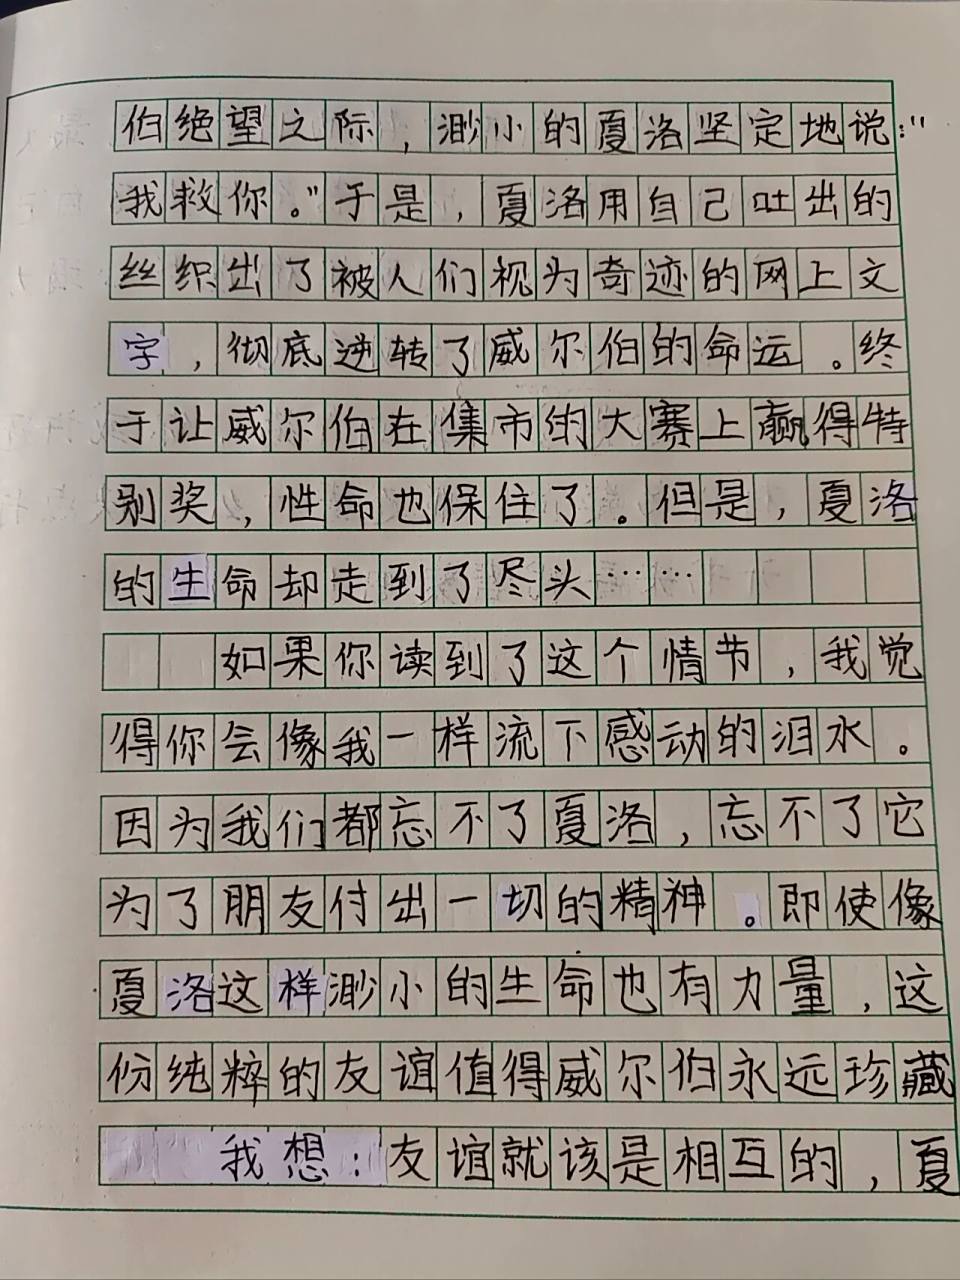 伯绝望之际，渺小的夏洛坚定地说：“
我救你。”于是，夏洛用自己吐出的
丝织出了被人们视为奇迹的网上文
字，彻底逆转了威尔伯的命运。终
于让威尔伯在集市的大赛上赢得特
别奖，性命也保住了。但是，夏洛
的生命却走到了尽头……
如果你读到了这个情节，我觉
得你会像我一样流下感动的泪水。
因为我们都忘不了夏洛，忘不了它
为了朋友付出一切的精神。即使像
夏洛这样渺小的生命也有力量，这
份纯粹的友谊值得威尔伯永远珍藏
我想：友谊就该是相互的，夏